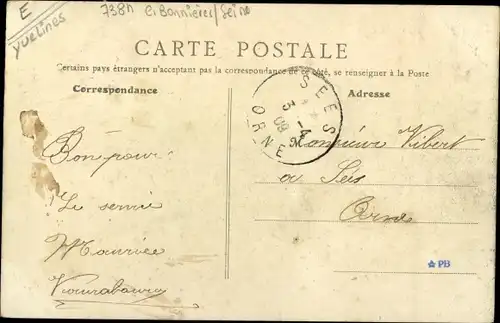 E
Yvelines
738h c. Bonnières/Seine
CARTE POSTALE
Certains pays étrangers n'acceptant pas la correspondance de ce côté, se renseigner à la Poste
Correspondance
Adresse
SEES
3 -4
08
ORNE
Bonjour
Le
Maurice
Monsieur Vibert
à Sées
Orne
PB